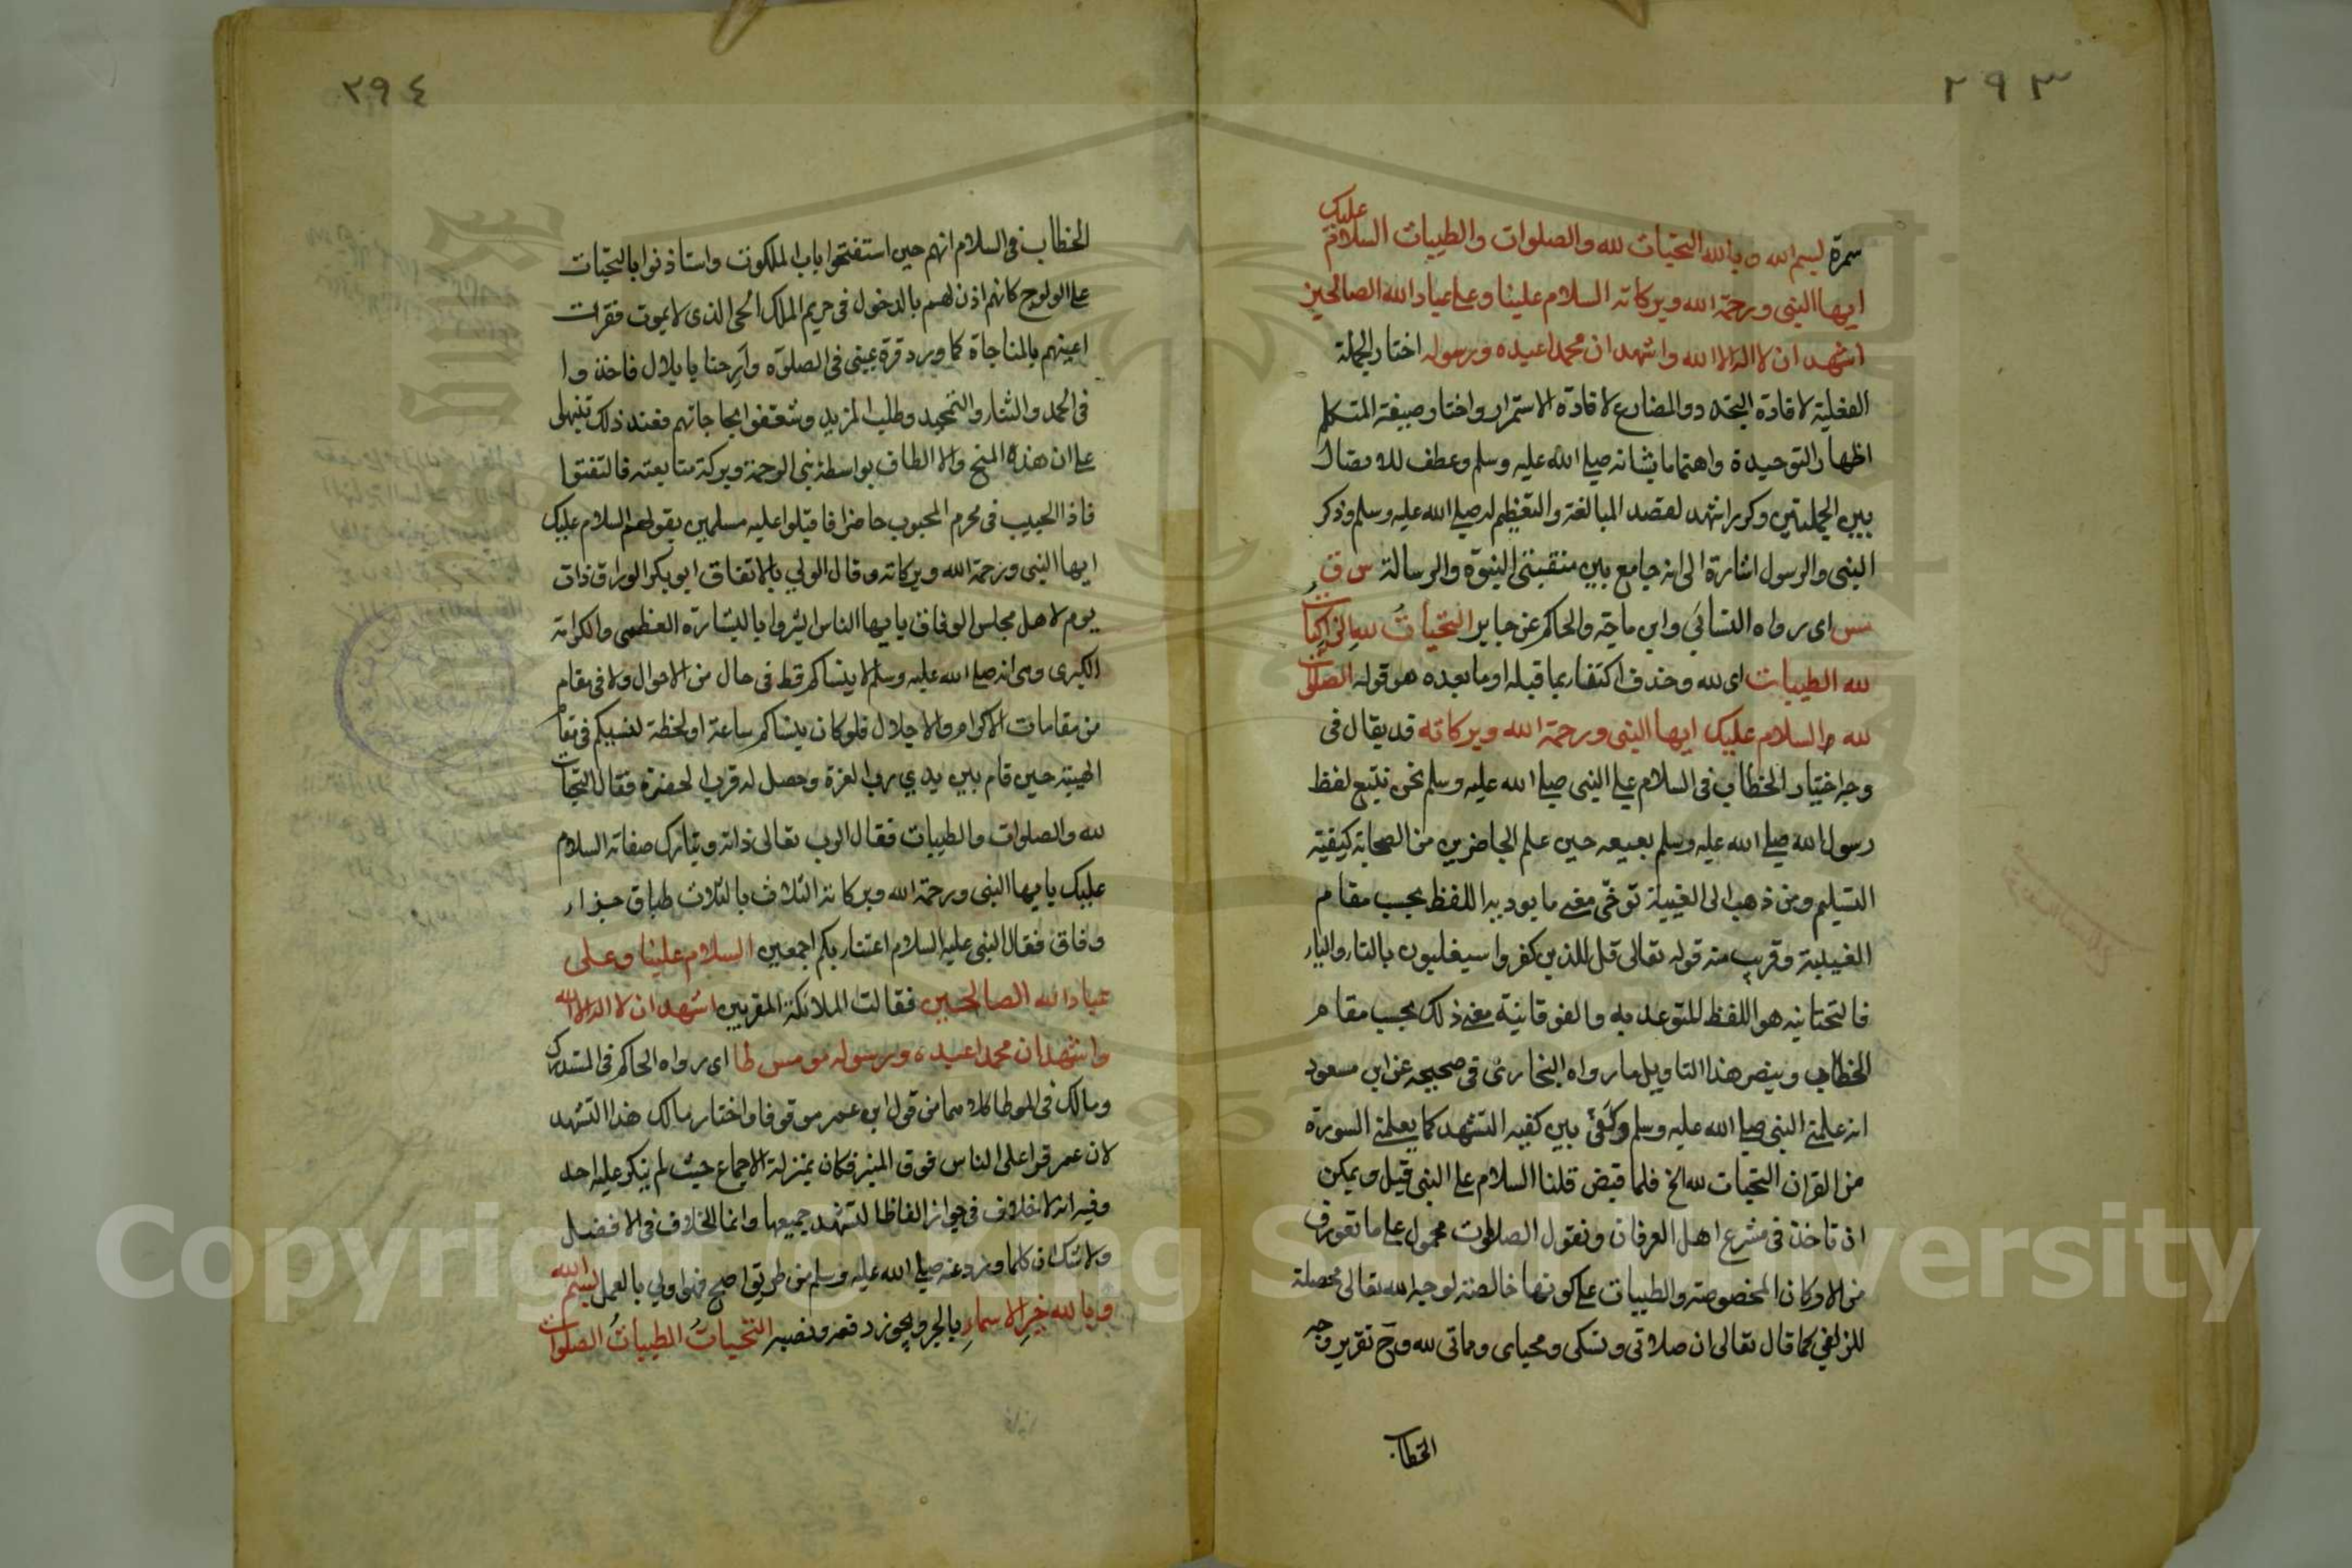 ٢٩٣
سمرة بسم الله وبالله التحيات لله والصلوات والطيبات السلام عليك
ايها النبي ورحمة الله وبركاته السلام علينا وعلى عباد الله الصالحين
اشهد ان لا اله الا الله واشهد ان محمدا عبده ورسوله اختار الجملة
الفعلية لافادة التجدد والمضارع لافادة الاستمرار واختار صيغة المتكلم
اظهار التوحيده واهتماما بشانه صلى الله عليه وسلم وعطف للاتصال
بين الجملتين وكرر اشهد لقصد المبالغة والتعظيم له صلى الله عليه وسلم وذكر
النبي والرسول اشارة الى انه جامع بين منقبتي النبوة والرسالة س ق
مس اي رواه النسائي وابن ماجة والحاكم عن جابر التحيات لله الزاكيات
لله الطيبات اي لله وحذف اكتفاء بما قبله او ما بعده هو قوله الصلوات
لله السلام عليك ايها النبي ورحمة الله وبركاته قد يقال في
وجه اختيار الخطاب في السلام على النبي صلى الله عليه وسلم نحن نتبع لفظ
رسول الله صلى الله عليه وسلم بعينه حين علم الحاضرين من الصحابة كيفية
التسليم ومن ذهب الى الغيبة توخى معنى ما يودى به اللفظ بحسب مقام
الغيبة وقريب منه قوله تعالى قل للذين كفروا سيغلبون بالتاء والياء
فالتحتانية هو اللفظ المتوعد به والفوقانية معنى ذلك بحسب مقام
الخطاب وينصر هذا التاويل ما رواه البخاري في صحيحه عن ابن مسعود
انه علمني النبي صلى الله عليه وسلم وكفي بين كفيه التشهد كما يعلمني السورة
من القران التحيات لله الخ فلما قبض قلنا السلام على النبي قيل ويمكن
ان تاخذ في مشرع اهل العرفان ونقول الصلوات محمول على ما تعورف
من الاركان المخصوصة والطيبات على كونها خالصة لوجه الله تعالى محصلة
للزلفى كما قال تعالى ان صلاتي ونسكي ومحياي ومماتي لله وح تقرير وجه
الخطاب
٢٩٤
الخطاب في السلام انهم حين استفتحوا باب الملكوت واستاذنوا بالتحيات
على الولوج كانهم اذن لهم بالدخول في حريم الملك الحي الذي لا يموت فقرت
اعينهم بالمناجاة كما ورد قرة عيني في الصلوة وارحنا يا بلال فاخذوا
في الحمد والثناء والتمجيد وطلب المزيد وقد ذلك تنبهوا
على ان هذه المنح والالطاف بواسطة نبي الرحمة وبركة متابعته فالتفتوا
فاذا الحبيب في محرم المحبوب حاضر فاقبلوا عليه مسلمين بقولهم السلام عليك
ايها النبي ورحمة الله وبركاته وقال الولي بالاتفاق ابو بكر الوراق ذات
يوم لاهل مجلس الوفاق يا ايها الناس ابشروا بالبشارة العظمى والكرامة
الكبرى وهي انه صلى الله عليه وسلم لا ينساكم قط في حال من الاحوال ولا في مقام
من مقامات الاكرام والاجلال فلو كان ينساكم ساعة او لحظة لنسيكم في مقام
الهيبة حين قام بين يدي رب العزة وحصل له قرب الحضرة فقال التحيات
لله والصلوات والطيبات فقال الرب تعالى ذاته وتبارك صفاته السلام
عليك يا ايها النبي ورحمة الله وبركاته الثلاث بالثلاث طباق جزاء
وفاق فقال النبي عليه السلام اعتناء بكم اجمعين السلام علينا وعلى
عباد الله الصالحين فقالت الملائكة المقربين اشهد ان لا اله الا الله
واشهد ان محمدا عبده ورسوله مو مس طا اي رواه الحاكم في المستدرك
ومالك في الموطا كلاهما من قول ابن عمر موقوفا واختار مالك هذا التشهد
لان عمر قرا على الناس فوق المنبر فكان بمنزلة الاجماع حيث لم ينكر عليه احد
وفيه انه لا خلاف في جواز الفاظ التشهد جميعها وانما الخلاف في الافضل
ولا شك ان كلما ورد عنه صلى الله عليه وسلم من طريق اصح فهو اولي بالعمل بسم الله
وبالله خير الاسماء بالجر ويجوز رفعه ونصبه التحيات الطيبات الصلوات
Copyright © King Saud University